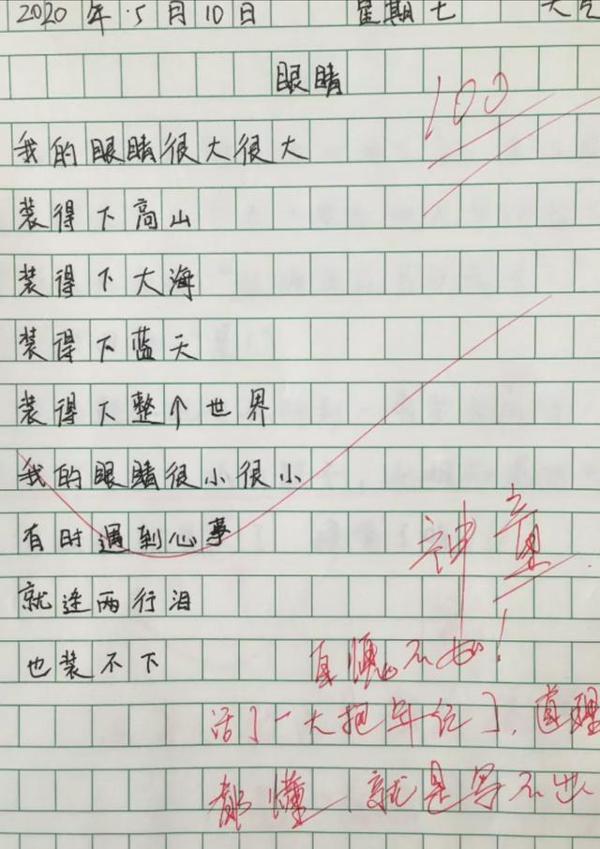 2020年5月10日 星期七 天气
眼睛
100
我的眼睛很大很大
装得下高山
装得下大海
装得下蓝天
装得大整个世界
我的眼睛很小很小
有时遇到心事
就连两行泪
也装不下
神童!
自愧不如
活了一大把年纪了,道理
都懂 就是写不出